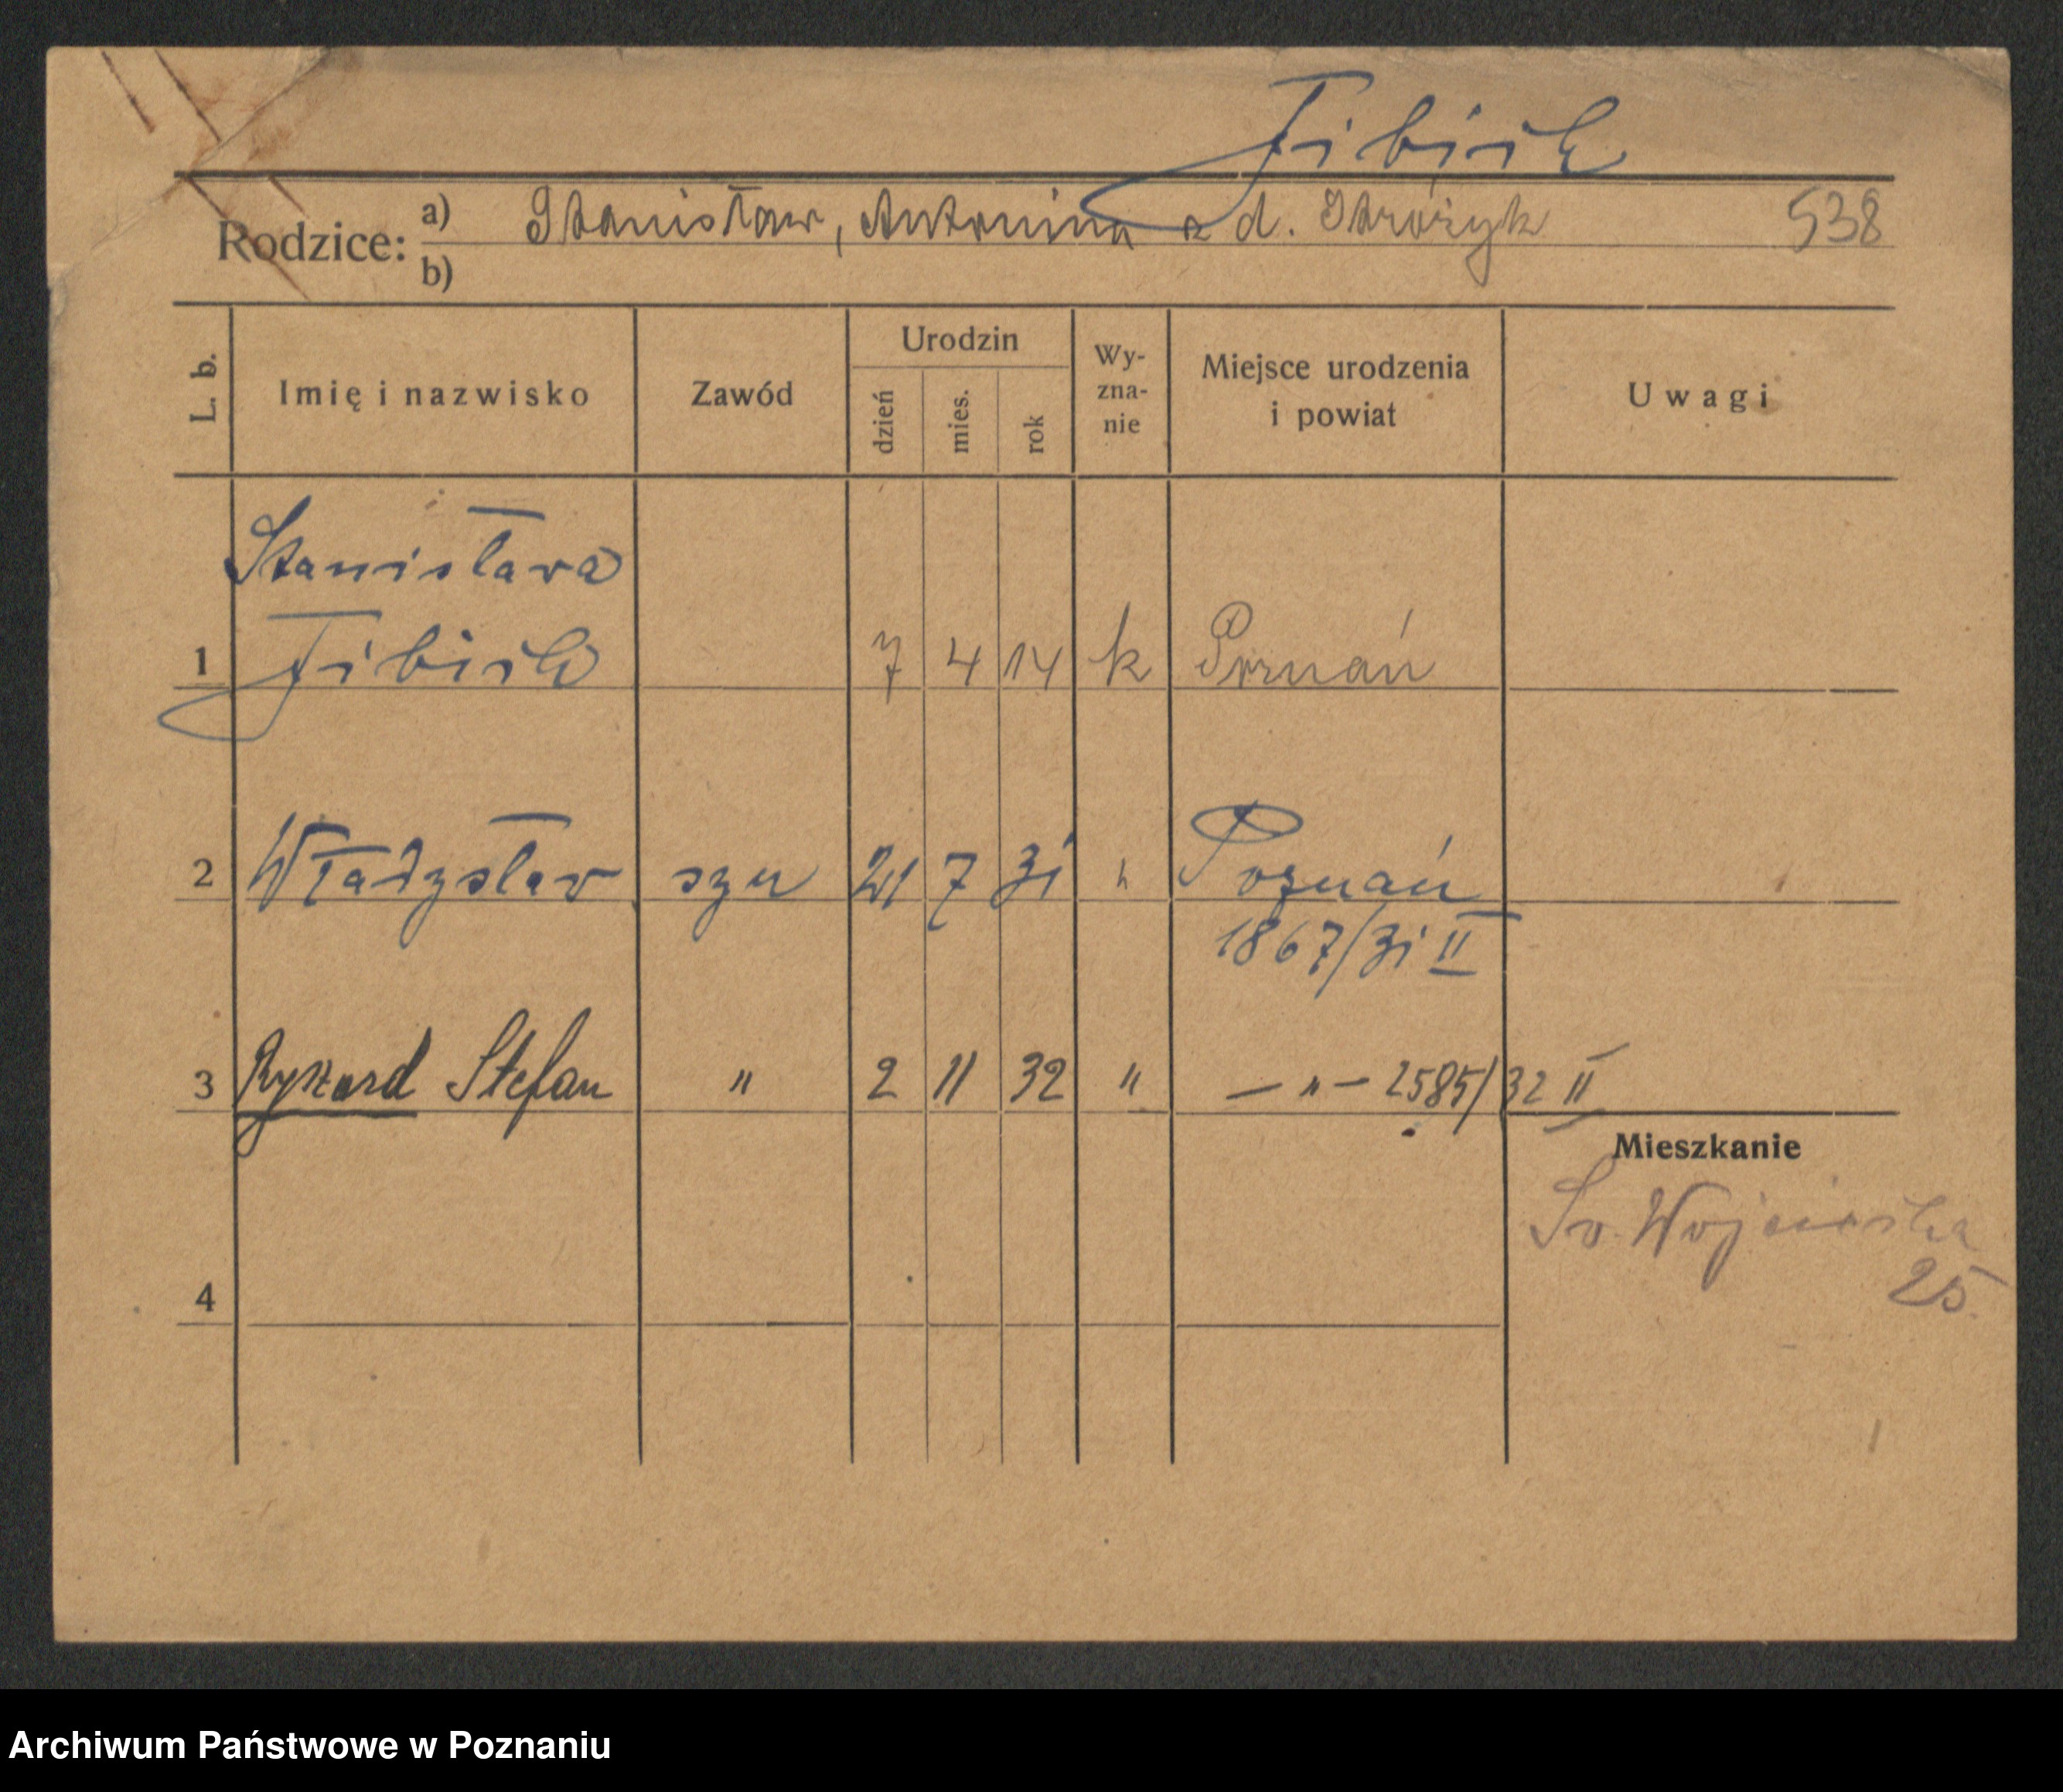 Fibich
Rodzice: a) Stanisław, Antonina z d. Stróżyk 538
b)
L. b. Imię i nazwisko Zawód Urodzin dzień mies. rok Wy-zna-nie Miejsce urodzenia i powiat Uwagi
Stanisława
1 Fibich 7 4 14 k Poznań
2 Władysław syn 21 7 31 " Poznań
1867/31 II
3 Ryszard Stefan " 2 11 32 " — " — 2585/32 II
Mieszkanie
Św. Wojciecha
25
4
Archiwum Państwowe w Poznaniu